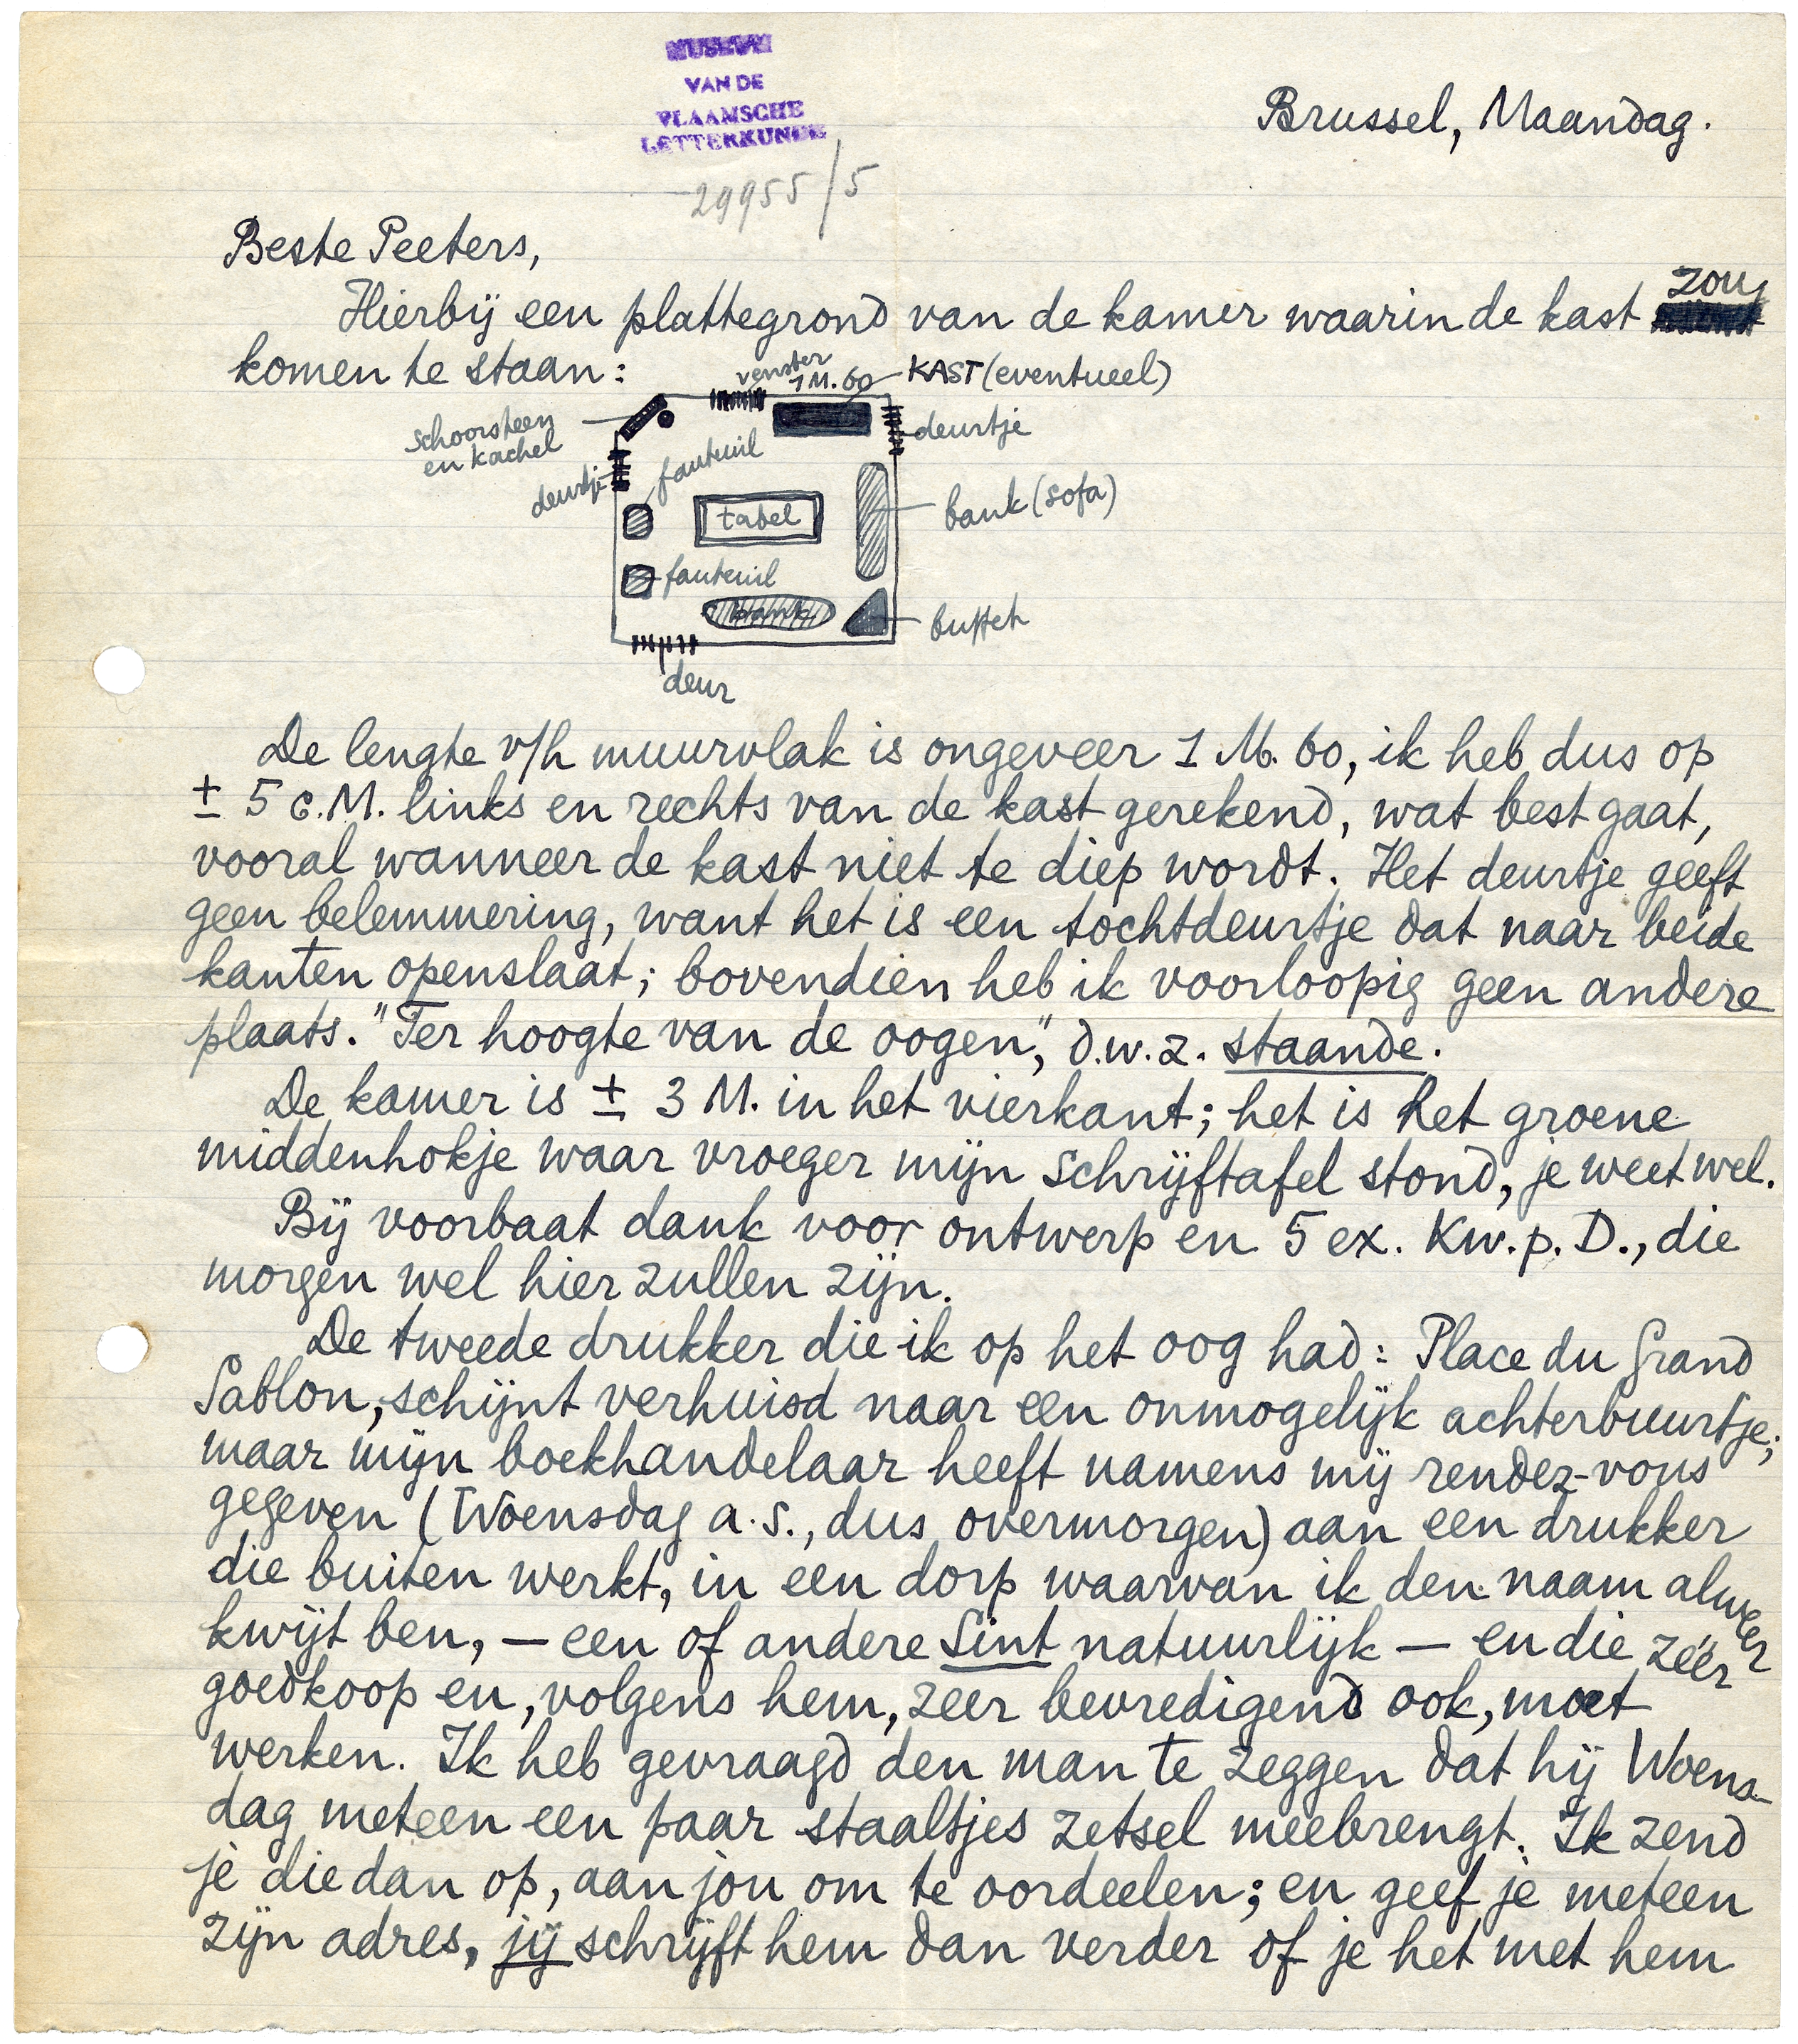 MUSEUM
VAN DE
VLAAMSCHE
LETTERKUNDE
29955/5
Brussel, Maandag.
Beste Peeters,
Hierbij een plattegrond van de kamer waarin de kast zou
komen te staan:
venster
1 M. 60
KAST (eventueel)
schoorsteen
en kachel
deurtje
deurtje
fauteuil
tafel
bank (sofa)
fauteuil
bank
buffet
deur
De lengte v/h muurvlak is ongeveer 1 M. 60, ik heb dus op
± 5 c.M. links en rechts van de kast gerekend, wat best gaat,
vooral wanneer de kast niet te diep wordt. Het deurtje geeft
geen belemmering, want het is een tochtdeurtje dat naar beide
kanten openslaat; bovendien heb ik voorloopig geen andere
plaats. "Ter hoogte van de oogen", d.w.z. staande.
De kamer is ± 3 M. in het vierkant; het is het groene
middenhokje waar vroeger mijn schrijftafel stond, je weet wel.
Bij voorbaat dank voor ontwerp en 5 ex. Kw. p. D., die
morgen wel hier zullen zijn.
De tweede drukker die ik op het oog had: Place du Grand
Sablon, schijnt verhuisd naar een onmogelijk achterbuurtje;
maar mijn boekhandelaar heeft namens mij rendez-vous
gegeven (Woensdag a.s., dus overmorgen) aan een drukker
die buiten werkt, in een dorp waarvan ik den naam alweer
kwijt ben, — een of andere Sint natuurlijk — en die zéér
goedkoop en, volgens hem, zeer bevredigend ook, moet
werken. Ik heb gevraagd den man te zeggen dat hij Woens-
dag meteen een paar staaltjes zetsel meebrengt. Ik zend
je die dan op, aan jou om te oordeelen; en geef je meteen
zijn adres, jij schrijft hem dan verder of je het met hem